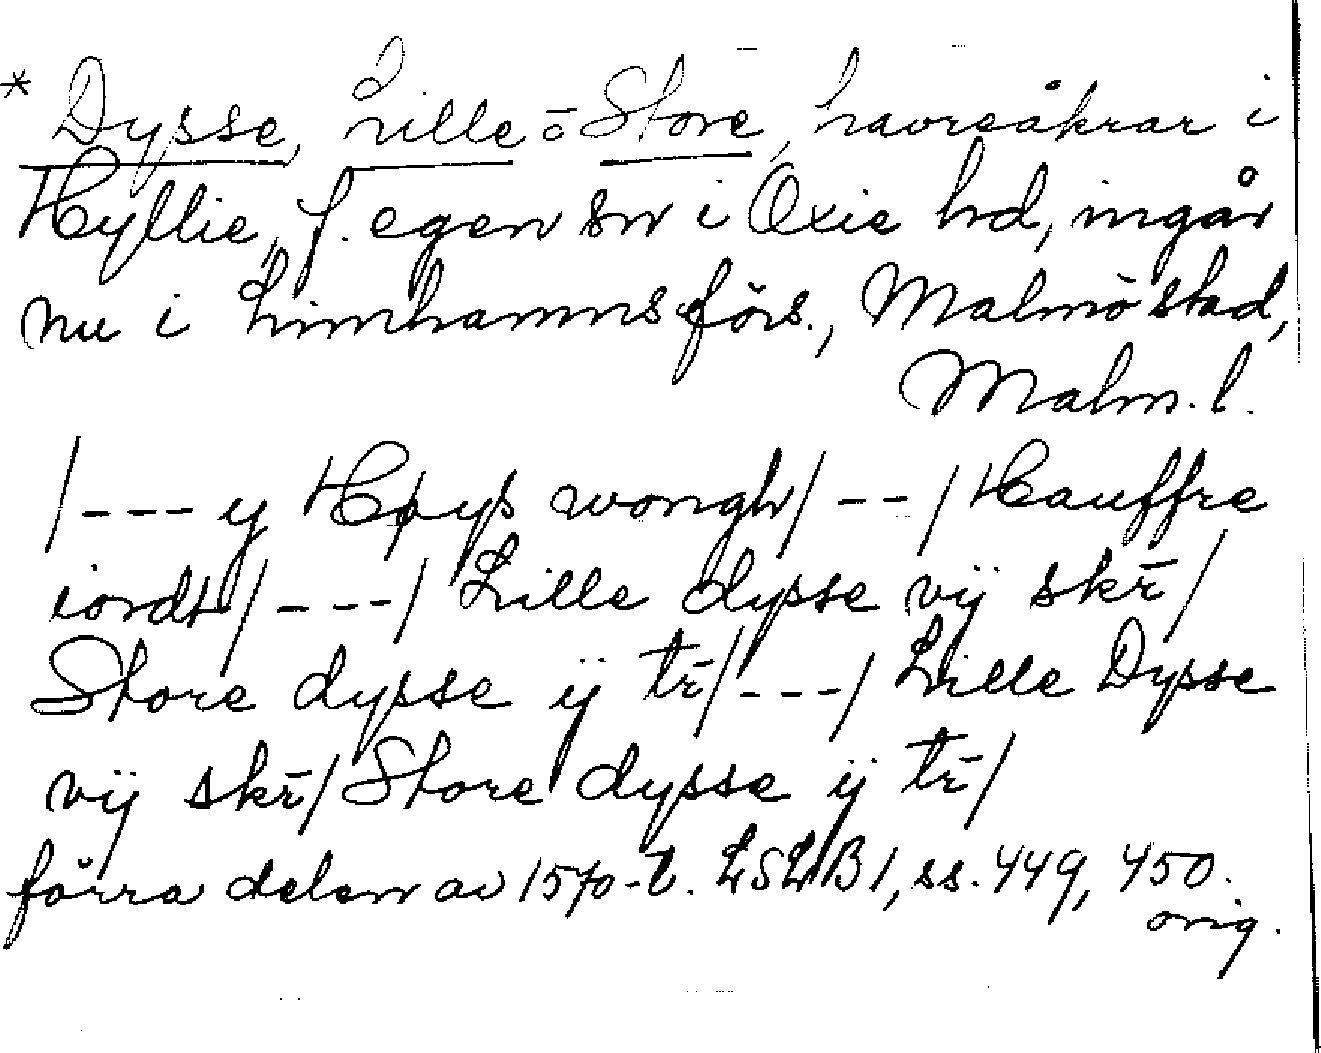 * Dysse, Lille o Store, havreåkrar i
Hyllie, f. egen sn i Oxie hd, ingår
nu i Limhamns förs., Malmö stad,
Malm. l.
/---y Høys wongh/ --/ Hauffre
iordt/ ---/ Lille dysse vij skr̄/
Store dysse ij tr̄/ ---/ Lille Dysse
vij skr̄/ Store dysse ij tr̄/
förra delen av 1570-t. LSLB 1, ss. 449, 450.
orig.